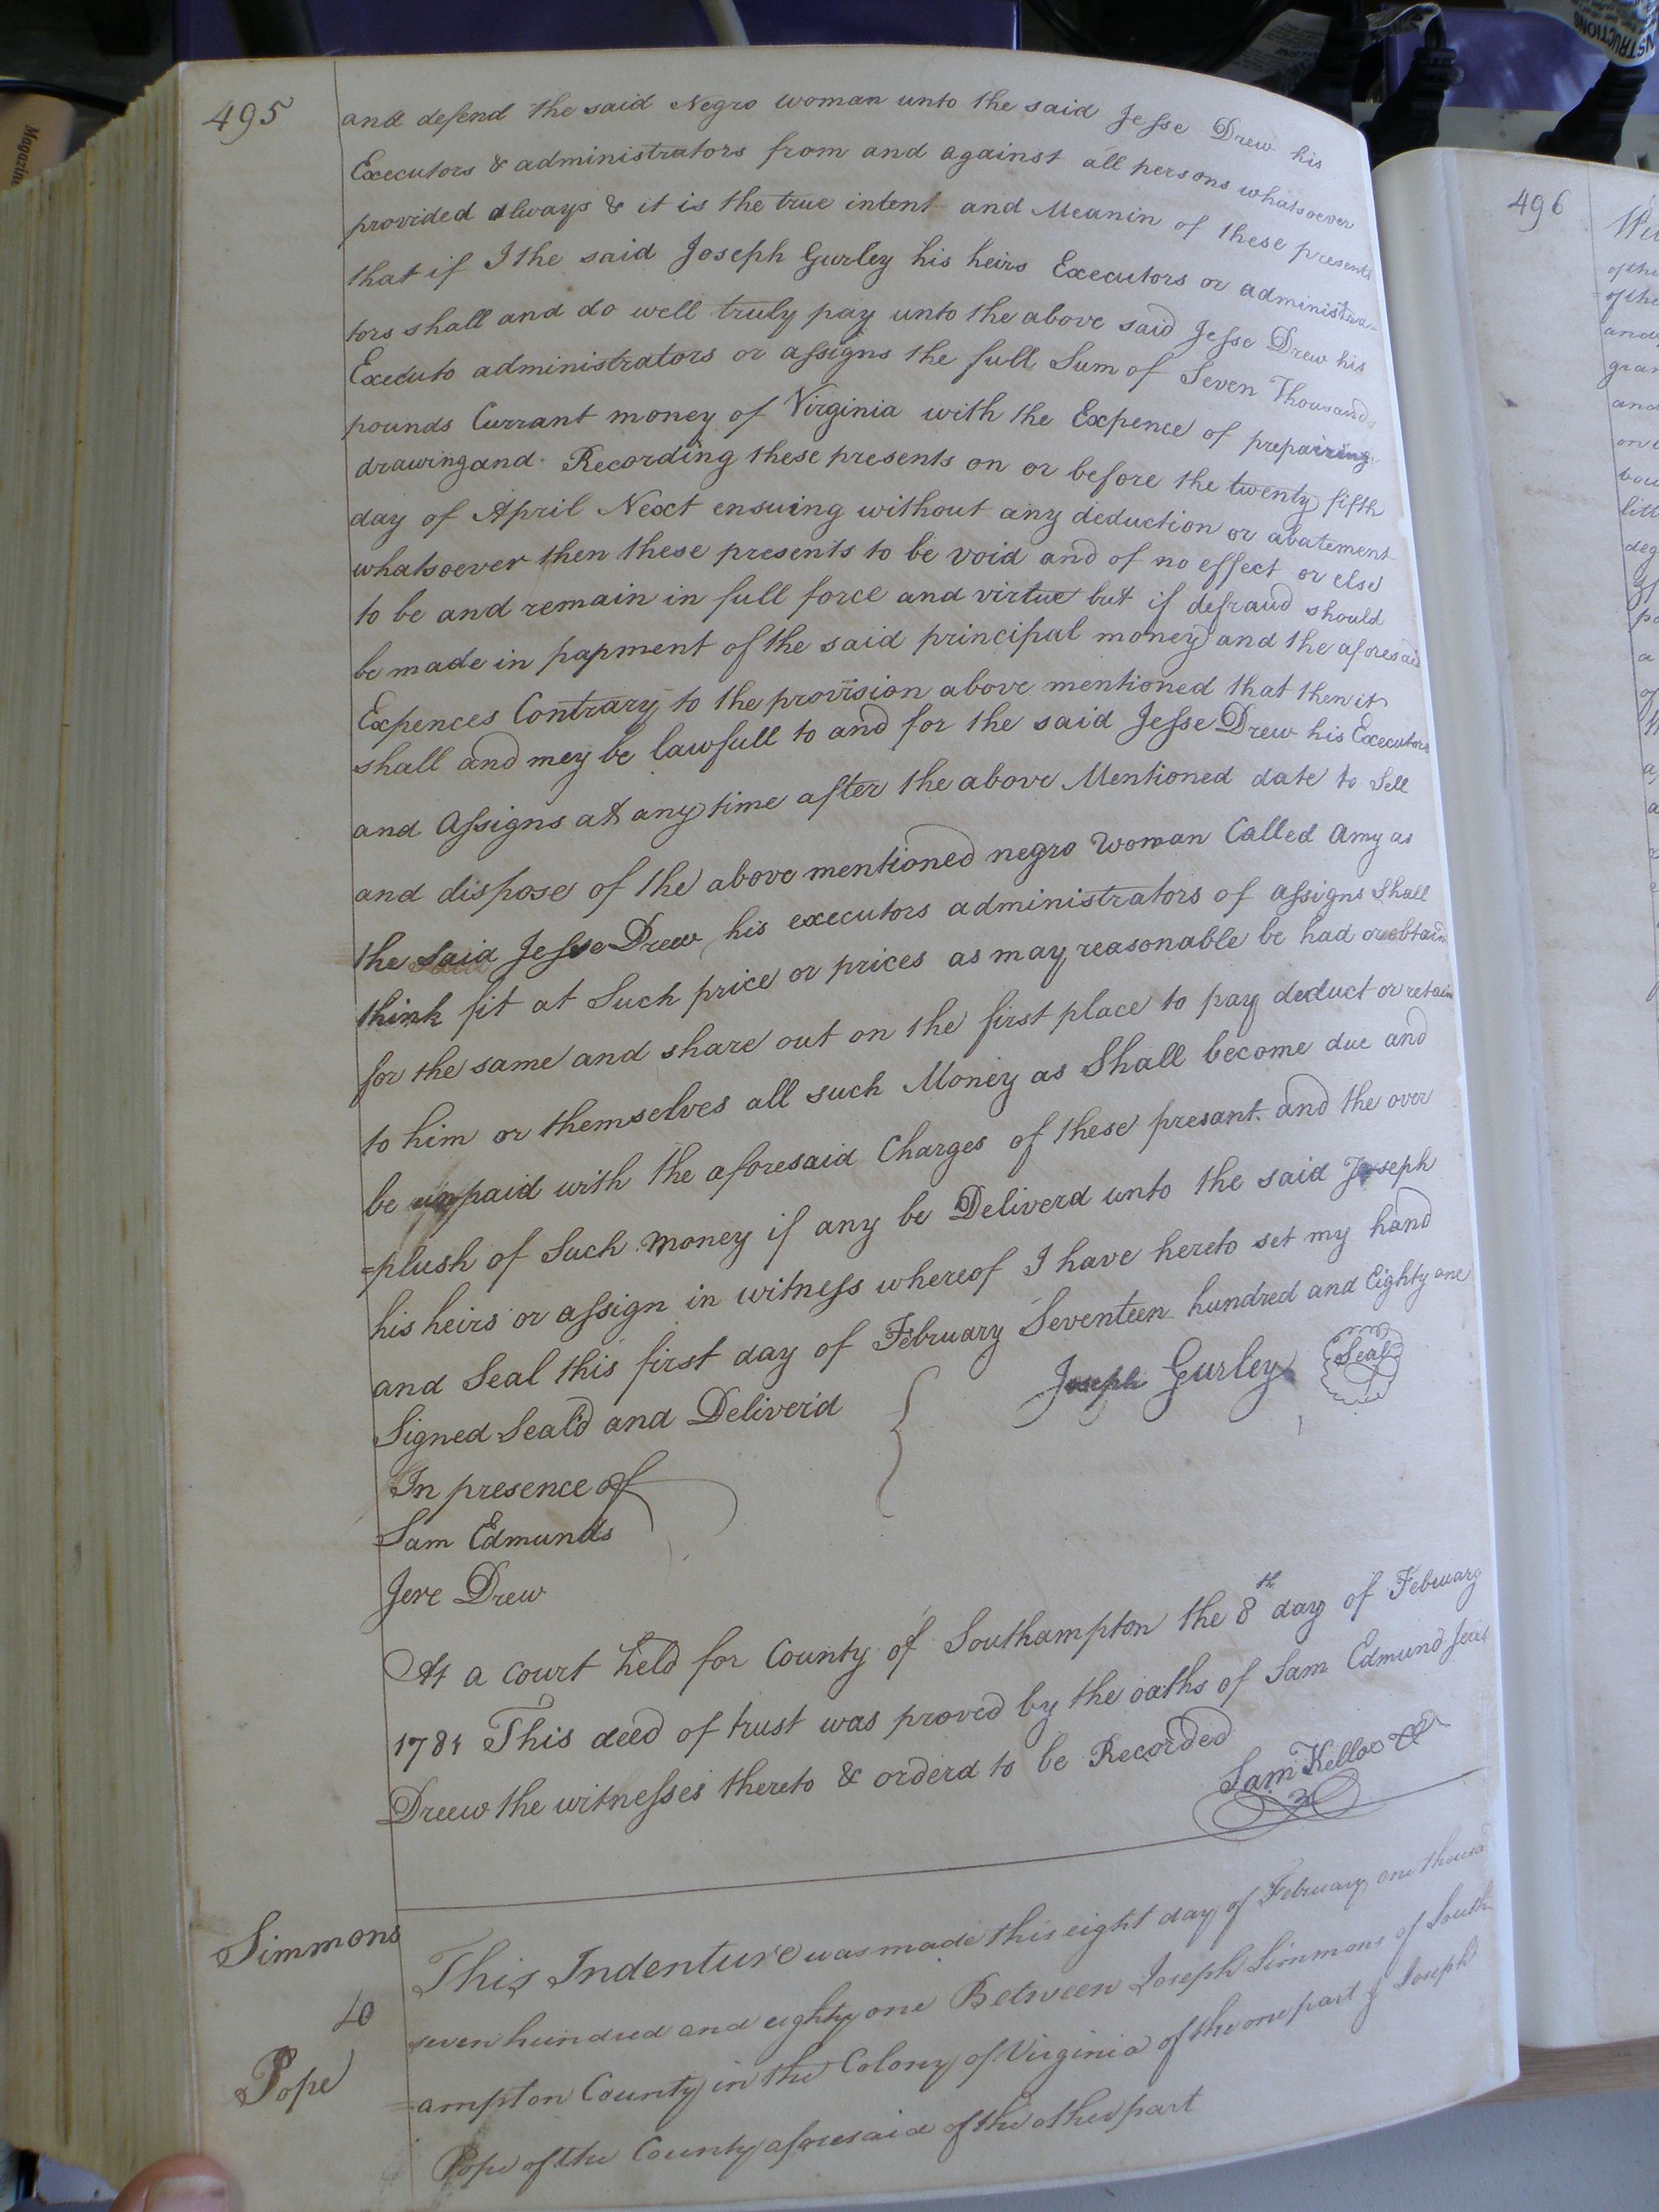 495
and defend the said Negro woman unto the said Jesse Drew his
Executors & administrators from and against all persons whatsoever
provided always & it is the true intent and Meanin of these presents
that if I the said Joseph Gurley his heirs Executors or administra-
tors shall and do well truly pay unto the above said Jesse Drew his
Executo administrators or assigns the full Sum of Seven Thousand
pounds Currant money of Virginia with the Expence of prepairing
drawing and Recording these presents on or before the twenty fifth
day of April Next ensuing without any deduction or abatement
whatsoever then these presents to be void and of no effect or else
to be and remain in full force and virtue but if defraud should
be made in papment of the said principal money and the aforesaid
Expences Contrary to the provision above mentioned that then it
shall and mey be lawfull to and for the said Jesse Drew his Executors
and Assigns at any time after the above Mentioned date to Sell
and dispose of the above mentioned negro Woman Called Amy as
the said Jesse Drew his executors administrators of assigns Shall
think fit at Such price or prices as may reasonable be had or obtain
for the same and share out on the first place to pay deduct or retain
to him or themselves all such Money as Shall become due and
be unpaid with the aforesaid Charges of these presant and the over
=plush of Such money if any be Deliverd unto the said Joseph
his heirs or assign in witness whereof I have hereto set my hand
and Seal this first day of February Seventeen hundred and Eighty one
Signed Seal'd and Deliver'd
Joseph Gurley Seal
In presence of
Sam Edmunds
Jere Drew
At a court held for County of Southampton the 8th day of February
1781 This deed of trust was proved by the oaths of Sam Edmund
Dreew the witnesses thereto & orderd to be Recorded
Sam Kello
Simmons
to
Pope
This Indenture was made this eight day of February one thousd
seven hundred and eighty one Between Joseph Simmons of South
=ampton County in the Colony of Virginia of the one part & Joseph
Pope of the County aforesaid of the other part
496
of the
of the
and
and
a
Magazine